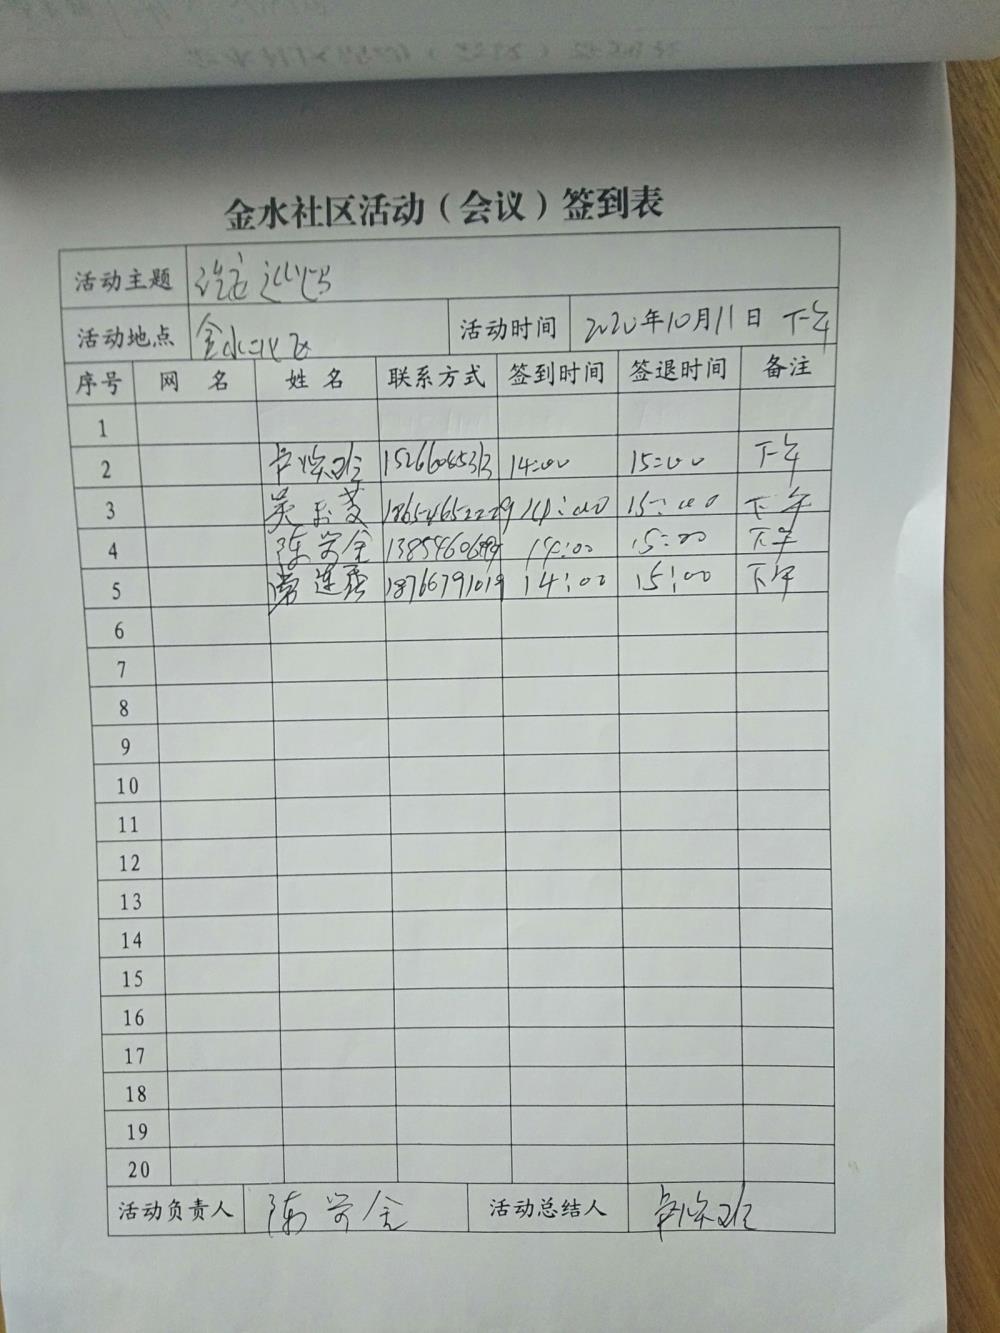 金水社区活动（会议）签到表
活动主题
活动地点 金水社区 活动时间 2020年10月11日 下午
序号 网 名 姓 名 联系方式 签到时间 签退时间 备注
1
2 14:00 15:00 下午
3 18654652229 14:00 15:00 下午
4 陈学金 14:00 15:00 下午
5 常连香 18766791019 14:00 15:00 下午
6
7
8
9
10
11
12
13
14
15
16
17
18
19
20
活动负责人 陈学金 活动总结人